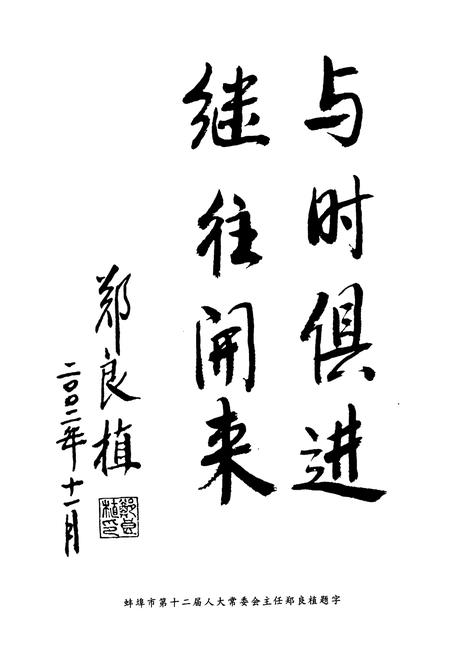 与时俱进
继往开来
郑良植
二〇〇二年十一月
郑良植印
蚌埠市第十二届人大常委会主任郑良植题字